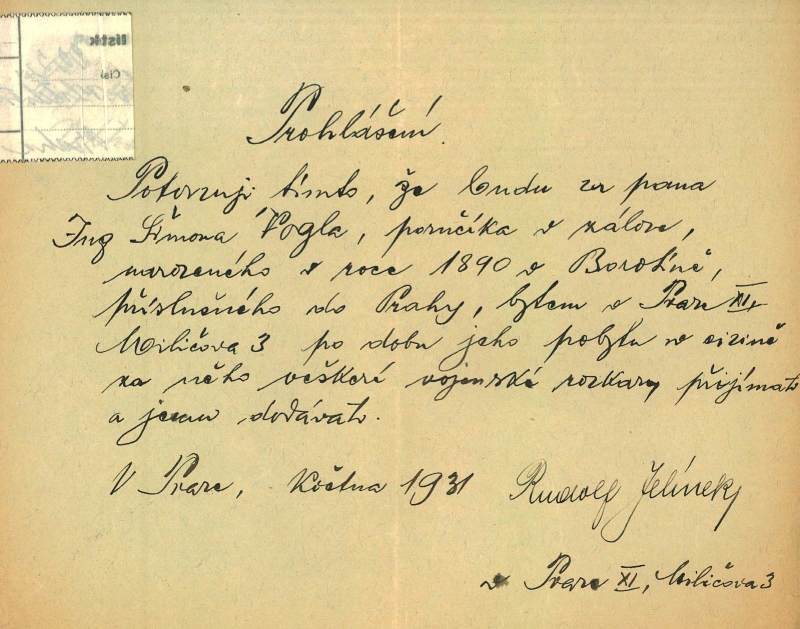 lístek
Čís
Prohlášení.
Potvrzuji tímto, že budu za pana
Ing Šimona Vogla, poručíka v záloze,
narozeného v roce 1890 v Borotíně,
příslušného do Prahy, bytem v Praze XI,
Miličova 3 po dobu jeho pobytu v cizině
za něho veškeré vojenské rozkazy přijímati
a jemu dodávati.
V Praze, května 1931 Rudolf Jelínek,
v Praze XI, Miličova 3